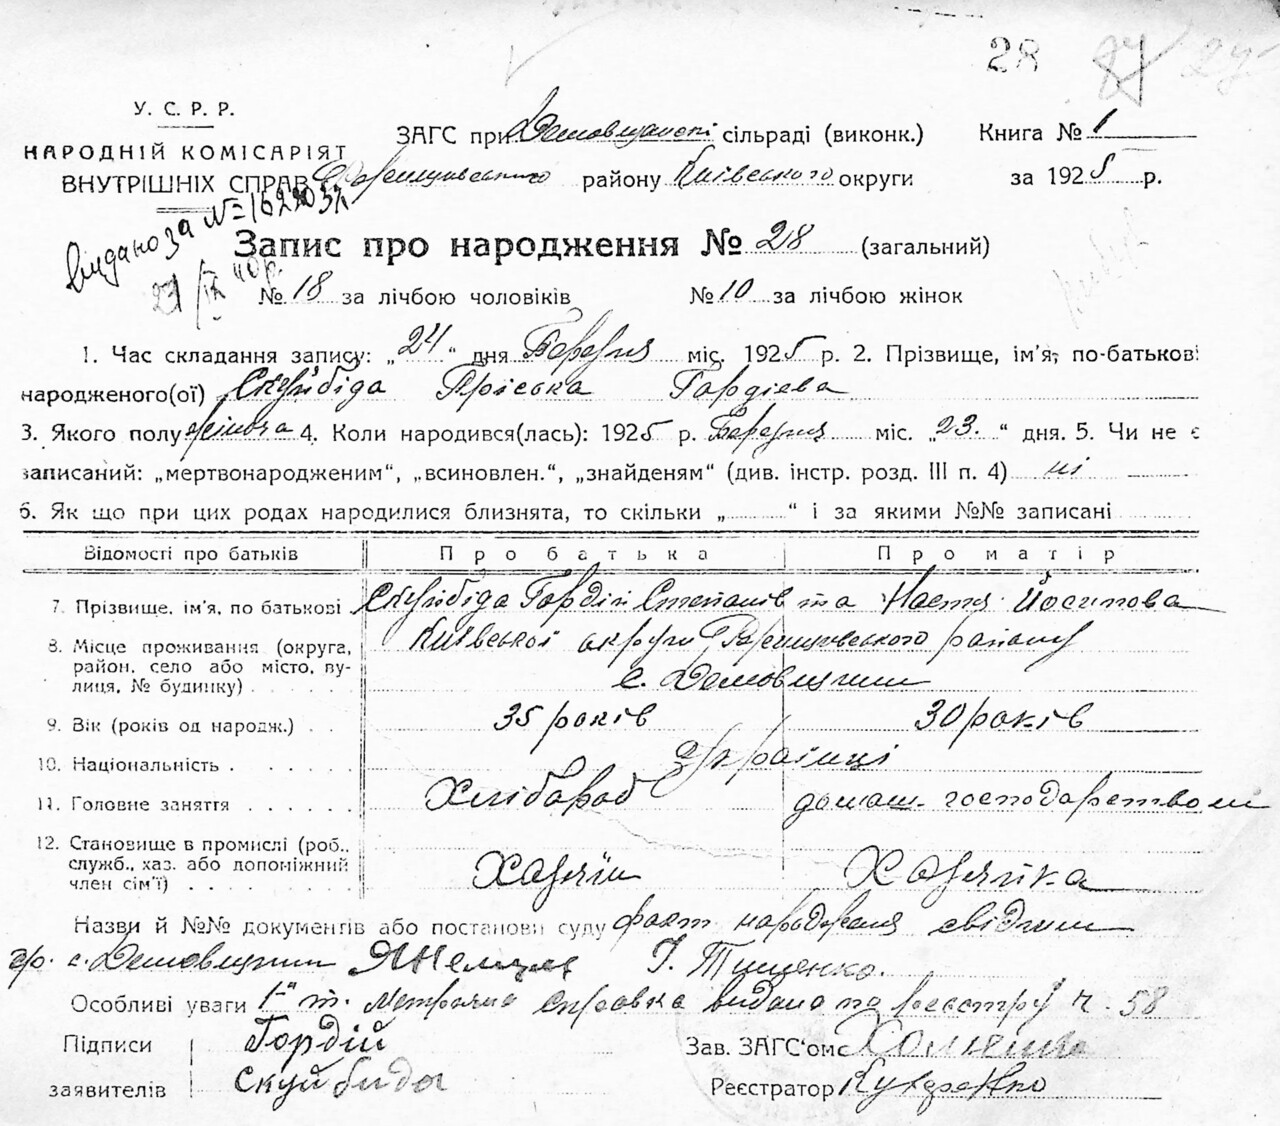 28 87 24
У. С. Р. Р.
НАРОДНІЙ КОМІСАРІЯТ
ВНУТРІШНІХ СПРАВ
ЗАГС при Демовщанскі сільраді (виконк.)
Ржищівського району Київського округи
Книга № 1
за 1925 р.
видано за №
Запис про народження № 28 (загальний)
№ 18 за лічбою чоловіків № 10 за лічбою жінок
1. Час складання запису: „24“ дня Березня міс. 1925 р. 2. Прізвище, ім'я, по-батькові
народженого(ої) Скуйбіда Пріська Гордієва
3. Якого полу жіноча 4. Коли народився(лась): 1925 р. Березня міс. „23.“ дня. 5. Чи не є
записаний: „мертвонародженим“, „всиновлен.“, „знайденям“ (див. інстр. розд. III п. 4) ні
6. Як що при цих родах народилися близнята, то скільки „ “ і за якими №№ записані
Відомості про батьків Про батька Про матір
7. Прізвище, ім'я, по батькові Скуйбіда Гордій Степанів та Настя Йосипова
8. Місце проживання (округа, район, село або місто, вулиця, № будинку) Київської округи Ржищівського району
с. Демовщини
9. Вік (років од народж.) 35 років 30 років
10. Національність українці
11. Головне заняття Хлібороб домаш. господарством
12. Становище в промислі (роб., служб., хаз. або допоміжний член сім'ї) Хазяїн Хазяйка
Назви й №№ документів або постанови суду факт народження свідчили
гр. с. Демовщини Я Немцев І. Тищенко.
Особливі уваги 1-а т. метрична справка видано по реєстру ч. 58
Підписи Гордій Зав. ЗАГС'омс
заявителів Скуйбиды Реєстратор Кухаренко